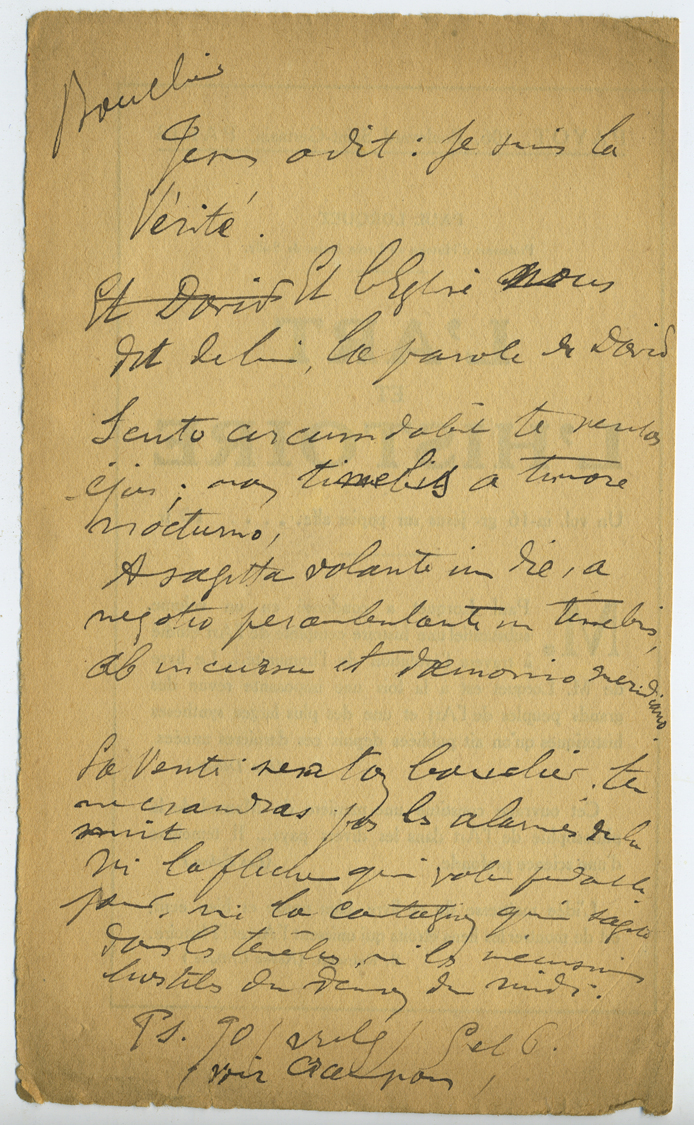 Bouclier
Jesus a dit : Je suis la
Vérité.
Et David Et l'Eglise nous
dit de lui, la parole de David
Scuto circumdabit te veritas
ejus ; non timebis a timore
nocturno,
A sagitta volante in die, a
negotio perambulante in tenebris,
ab incursu et dæmonio meridiano.
Sa Vérité sera ton bouclier. tu
ne craindras pas les alarmes de la
nuit
Ni la fleche qui vole pendant le
jour, ni la contagion qui
dans les ténèbres, ni les incursions
hostiles du démon du midi.
Ps. 90 / vulg / 5 et 6.
/ voir Crampon /